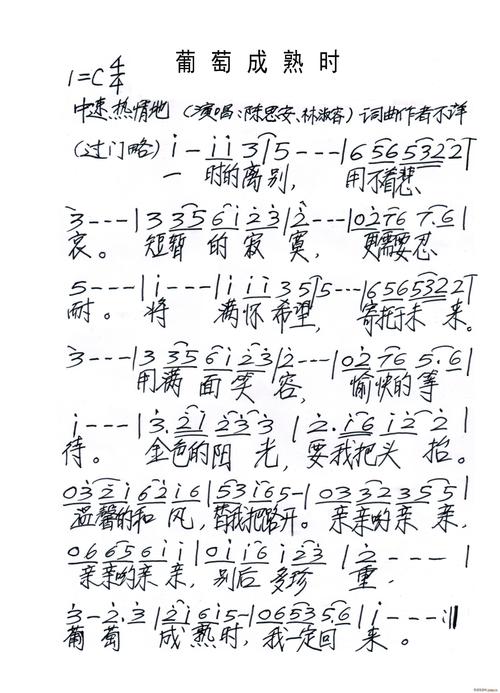 葡萄成熟时
1=C 4/4
中速 热情地 (演唱:陈思安、林淑容) 词曲作者不详
(过门略) i - i i 3 | 5 - - - | 6 5 6 5 5 3 2 2 |
一 时的离别, 用不着悲
3 - - - | 3 3 5 6 i 2 3 | 2 - - - | 0 2 7 6 7. 6 |
哀。 短暂 的 寂 寞, 更需要忍
5 - - - | i - - - | i i i 3 5 | 5 - - - | 6 5 6 5 5 3 2 2 |
耐。 将 满怀希望, 寄托于未 来。
3 - - - | 3 3 5 6 i 2 3 | 2 - - - | 0 2 7 6 5. 6 |
用满 面笑 容, 愉快的等
i - - - | 3. 2 i 2 3 3 | 2. i 6 i 2 2 |
待。 金色的阳 光, 要我把头 抬。
0 3 2 i 6 2 i 6 | 5 3 i 6 5 - | 0 3 3 2 3 5 5 |
温馨的和 风, 替我把路开。 亲亲的亲 亲,
0 6 6 5 6 i i | 0 i i 6 i 2 3 | 2 - - - |
亲亲的亲 亲, 别后 多珍 重,
3 - 2. 3 | 2 i 6 i 5 - | 0 6 5 3 5. 6 | i - - - :||
葡 萄 成 熟时, 我一定回 来。